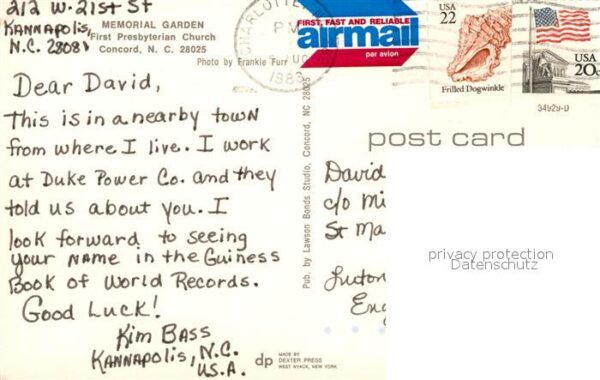 212 W. 21st St
Kannapolis,
N.C. 28081
MEMORIAL GARDEN
First Presbyterian Church
Concord, N. C. 28025
Photo by Frankie Furr
Dear David,
This is in a nearby town
from where I live. I work
at Duke Power Co. and they
told us about you. I
look forward to seeing
your name in the Guiness
Book of World Records.
Good Luck!
Kim Bass
Kannapolis, N.C.
U.S.A.
dp
MADE BY
DEXTER PRESS
WEST NYACK, NEW YORK
Pub. by Lawson Bonds Studio, Concord, NC 28025
CHARLOTTE
PM
1983
FIRST, FAST AND RELIABLE
airmail
par avion
USA
22
Frilled Dogwinkle
USA
20c
34929-D
post card
David
c/o Mi
St Ma
Luton
En
privacy protection
Datenschutz